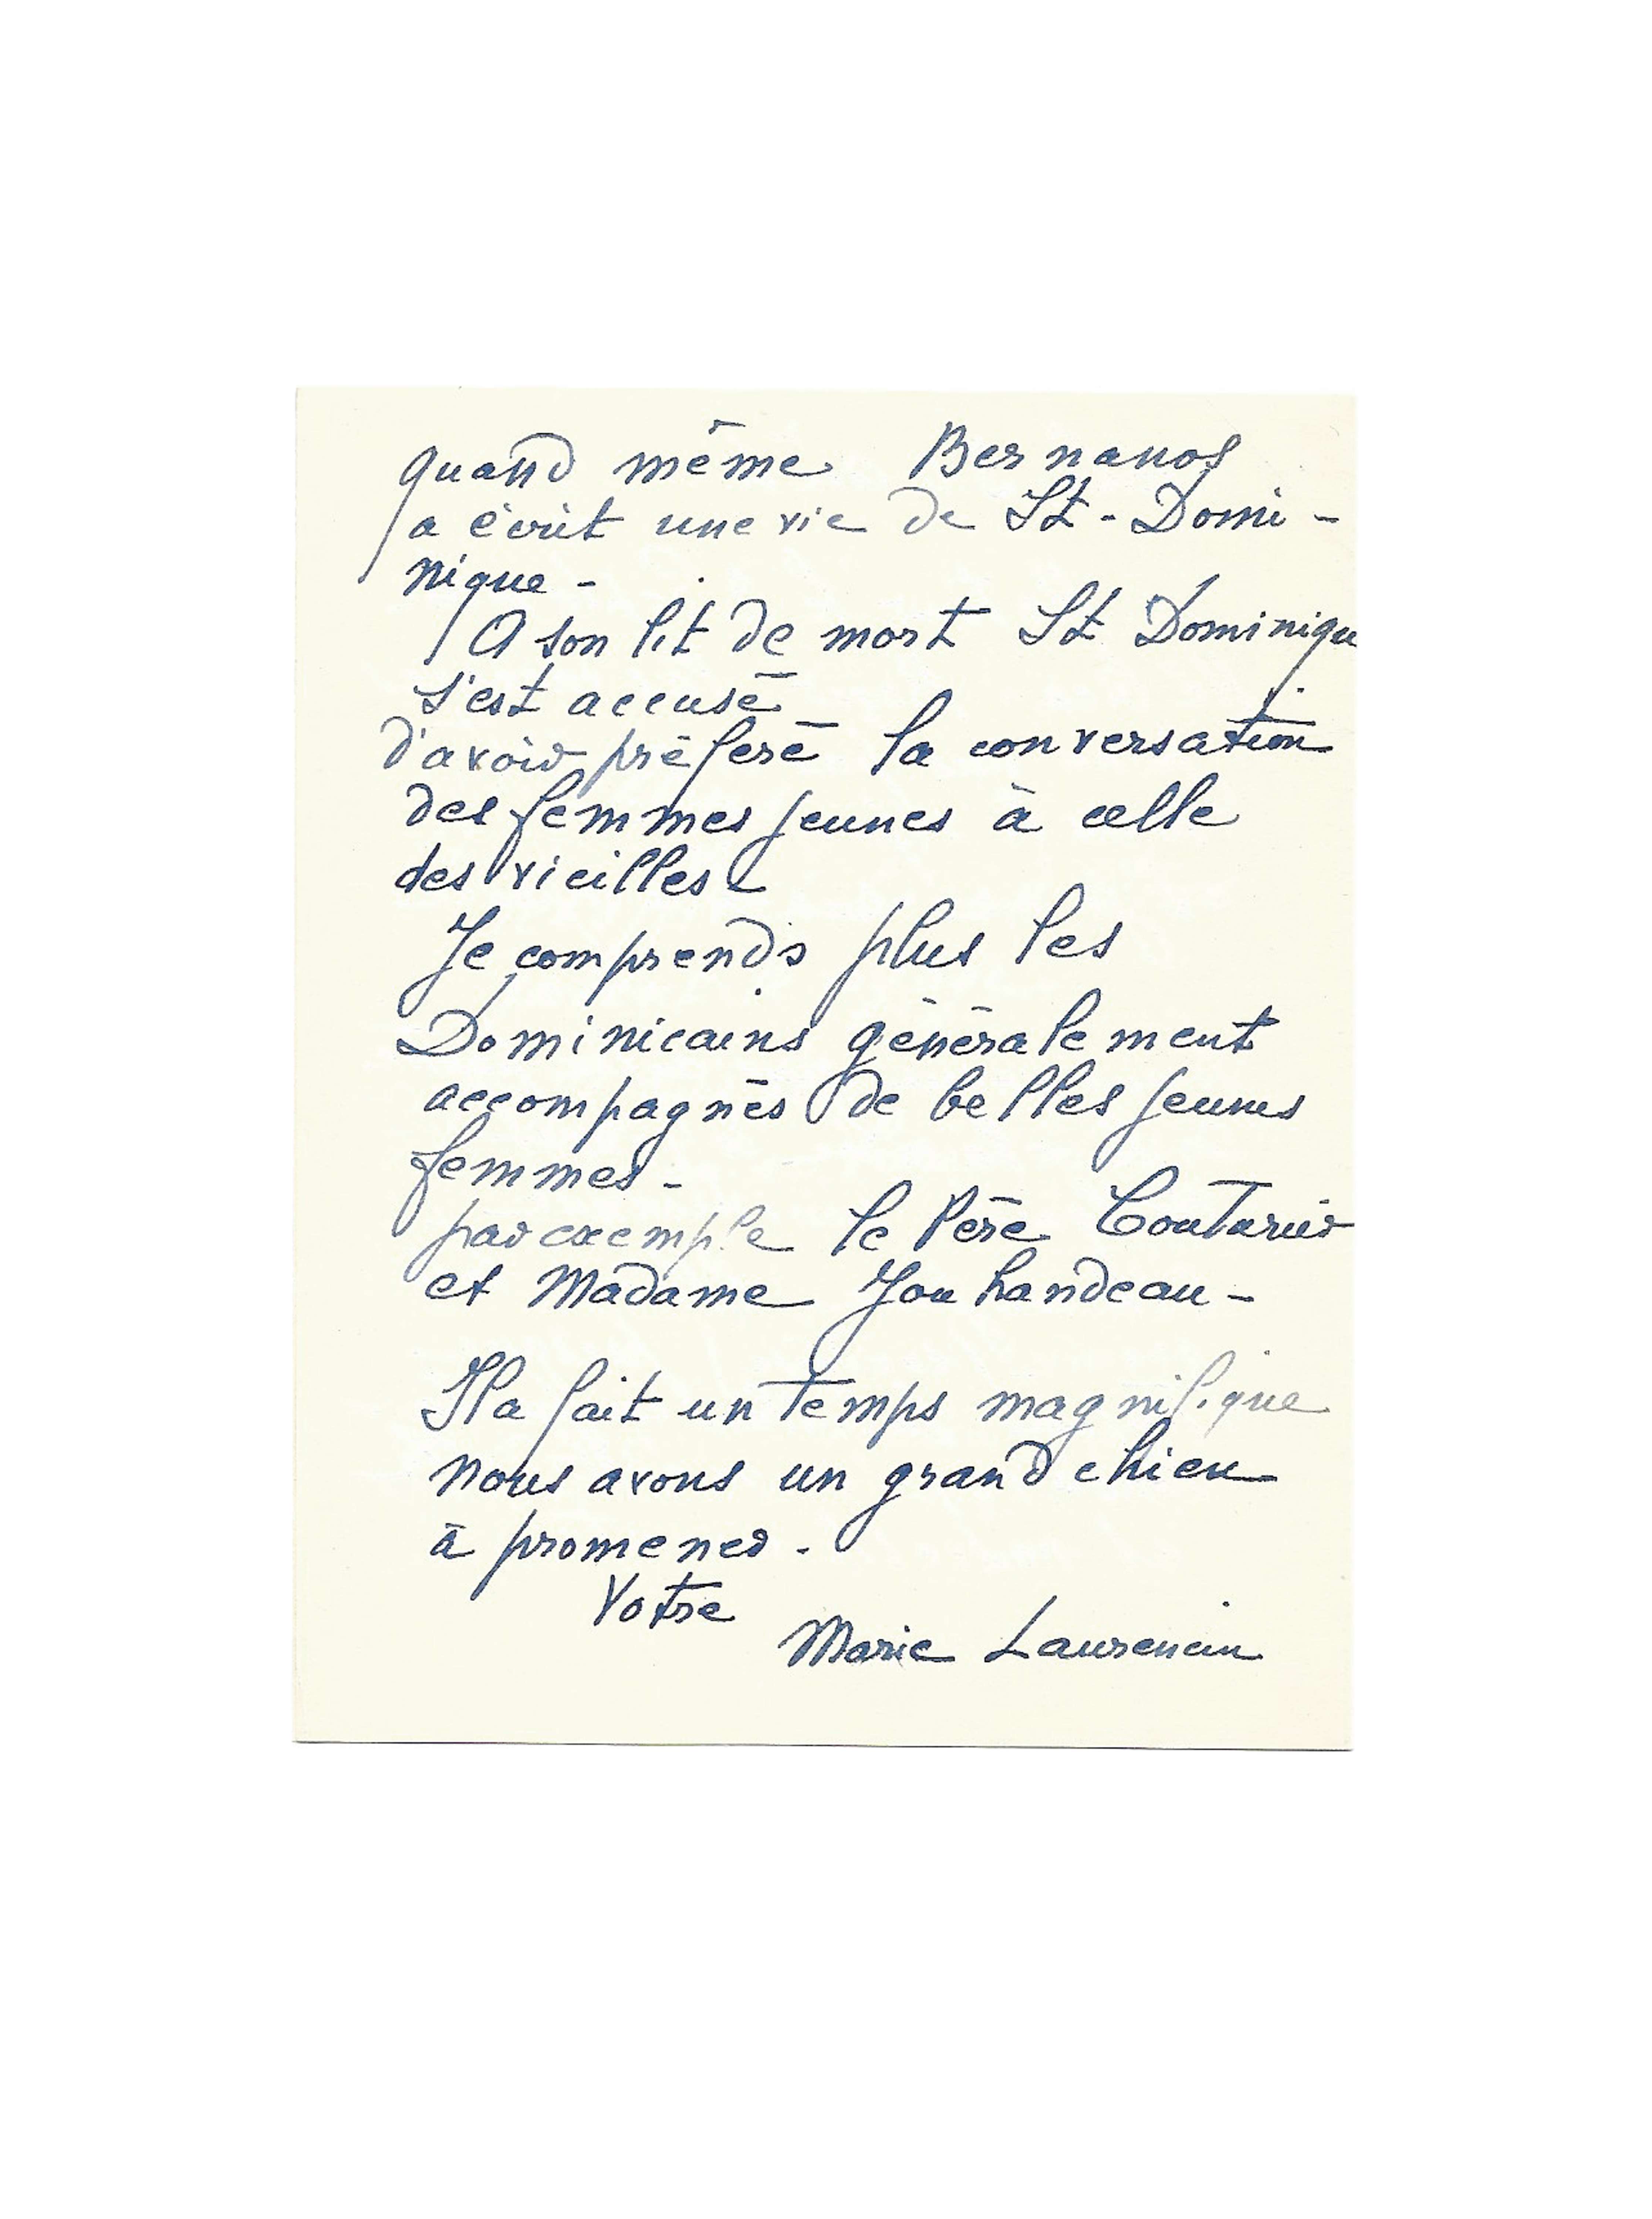 quand même Bernanos
a écrit une vie de St-Domi-
nique -
A son lit de mort St Dominique
s'est accusé
d'avoir préferé la conversation
des femmes jeunes à celle
des vieilles -
Je comprends plus les
Dominicains généralement
accompagnés de belles jeunes
femmes -
par exemple le Père Couturier
et Madame Jouhandeau -
Il a fait un temps magnifique
nous avons un grand chien
à promener -
Votre
Marie Laurencin